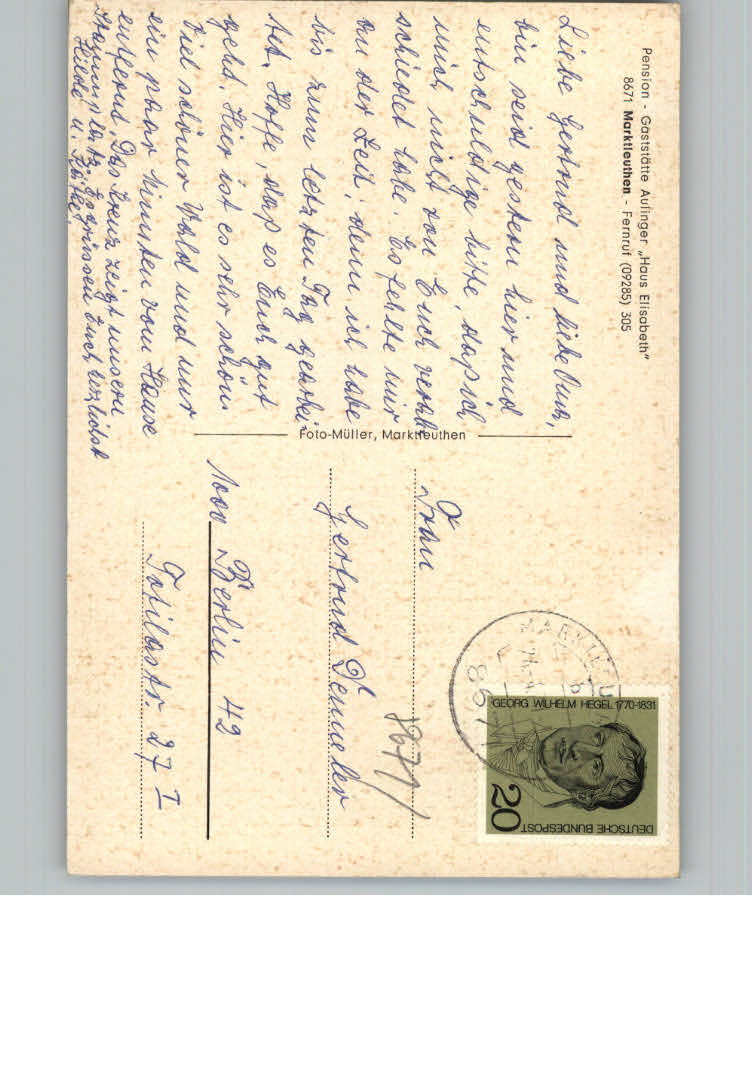 Pension - Gaststätte Aulinger „Haus Elisabeth"
8671 Marktleuthen - Fernruf (09285) 305
Liebe Gertrud und liebe
bin seid gestern hier und
entschuldige bitte, daß ich
mich nicht von Euch verab-
schiedet habe. Es fehlte mir
an der Zeit, denn ich habe
bis zum letzten Tag gearbei-
tet. Hoffe, daß es Euch gut
geht. Hier ist es sehr schön.
Viel schöner Wald und nur
ein paar Minuten vom Hause
entfernt. Das Kreuz zeigt unseren
Es grüssen Euch herzlichst
Hilde u.
Foto-Müller, Marktleuthen
Frau
Gertrud Demmler
1000 Berlin 42
Totilastr. 27 I
8671/
MARKTLEU
867
GEORG WILHELM HEGEL 1770-1831
20
DEUTSCHE BUNDESPOST